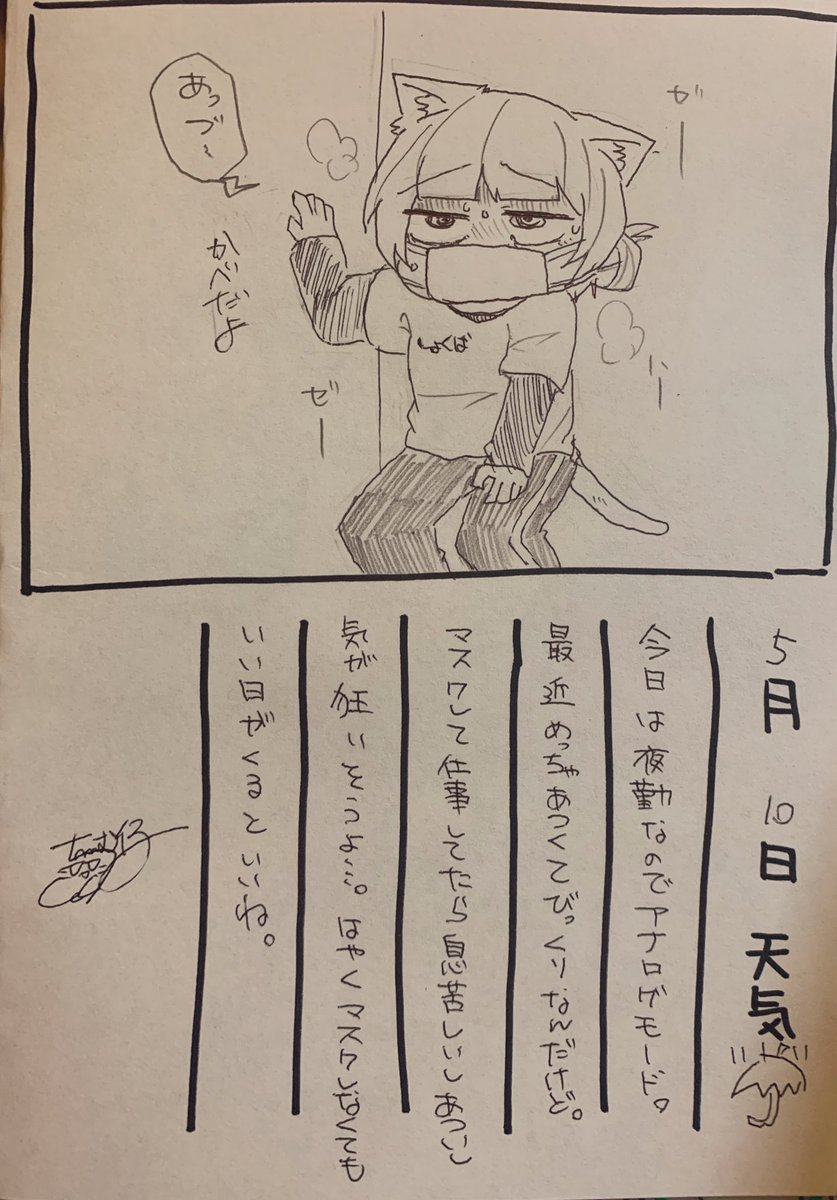 ゼー
ハー
あっづ〜
かべだよ
しょくば
ゼー
5月 10日 天気
今日は夜勤なのでアナログモード。
最近めっちゃあつくてびっくりなんだけど。
マスクして仕事してたら息苦しいしあついし
気が狂いそうよ…。はやくマスクしなくても
いい日がくるといいね。